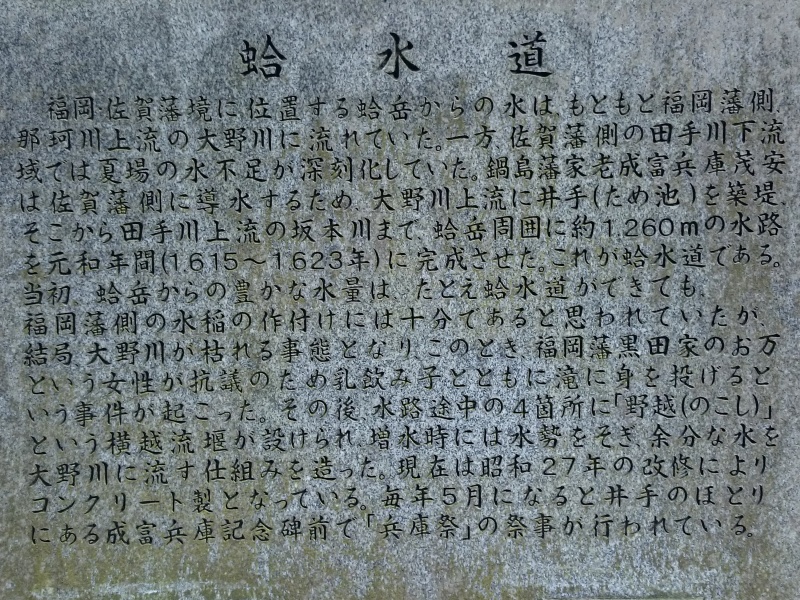 蛤水道
福岡・佐賀藩境に位置する蛤岳からの水は、もともと福岡藩側、
那珂川上流の大野川に流れていた。一方、佐賀藩側の田手川下流
域では夏場の水不足が深刻化していた。鍋島藩家老成富兵庫茂安
は佐賀藩側に導水するため、大野川上流に井手(ため池)を築堤、
そこから田手川上流の坂本川まで、蛤岳周囲に約1,260mの水路
を元和年間(1,615～1,623年)に完成させた。これが蛤水道である。
当初、蛤岳からの豊かな水量は、たとえ蛤水道ができても、
福岡藩側の水稲の作付けには十分であると思われていたが、
結局、大野川が枯れる事態となり、このとき、福岡藩黒田家のお万
という女性が抗議のため乳飲み子とともに滝に身を投げると
いう事件が起こった。その後、水路途中の4箇所に「野越(のこし)」
という横越流堰が設けられ、増水時には水勢をそぎ、余分な水を
大野川に流す仕組みを造った。現在は昭和27年の改修により
コンクリート製となっている。毎年5月になると井手のほとり
にある成富兵庫記念碑前で「兵庫祭」の祭事が行われている。